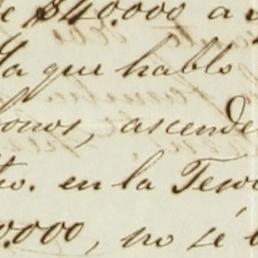 e $40.000 a
Ya que hablo
onos, ascende
to. en la Teso
0.000, no sé